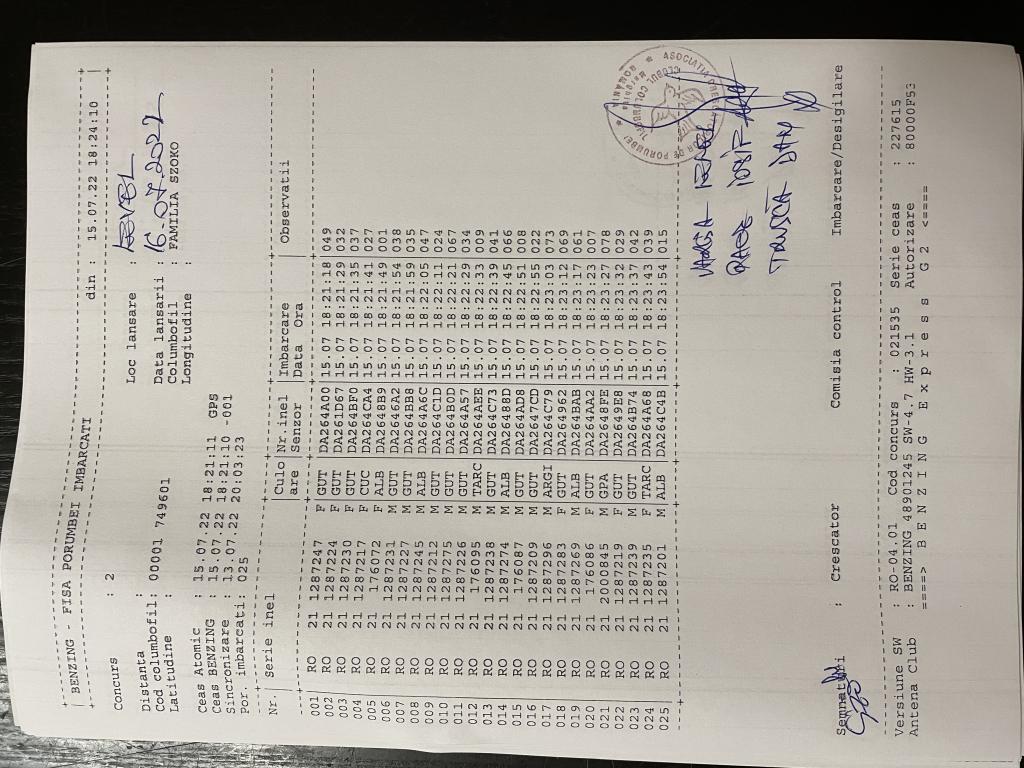 BENZING - FISA PORUMBEI IMBARCATI din : 15.07.22 18:24:10
Concurs : 2 Loc lansare :
Distanta : Data lansarii : 16.07.2022
Cod columbofil: 00001 749601 Columbofil : FAMILIA SZOKO
Latitudine : Longitudine :
Ceas Atomic : 15.07.22 18:21:11 GPS
Ceas BENZING : 15.07.22 18:21:10 -001
Sincronizare : 13.07.22 20:03:23
Por. imbarcati: 025
Nr. | Serie inel |Culo|Nr.inel |Imbarcare | Observatii
|are |Senzor |Data Ora
001| RO 21 1287247 F|GUT |DA264A00|15.07 18:21:18|049
002| RO 21 1287224 F|GUT |DA261D67|15.07 18:21:29|032
003| RO 21 1287230 F|GUT |DA264BF0|15.07 18:21:35|037
004| RO 21 1287217 F|CUC |DA264CA4|15.07 18:21:41|027
005| RO 21 176072 F|ALB |DA2648B9|15.07 18:21:49|001
006| RO 21 1287231 M|GUT |DA2646A2|15.07 18:21:54|038
007| RO 21 1287227 M|GUT |DA264BB8|15.07 18:21:59|035
008| RO 21 1287245 M|ALB |DA264A6C|15.07 18:22:05|047
009| RO 21 1287212 M|GUT |DA264C1D|15.07 18:22:11|024
010| RO 21 1287275 M|GUT |DA264B0D|15.07 18:22:21|067
011| RO 21 1287226 M|GUT |DA264A57|15.07 18:22:29|034
012| RO 21 176095 M|TARC|DA264AEE|15.07 18:22:33|009
013| RO 21 1287238 M|GUT |DA264C73|15.07 18:22:39|041
014| RO 21 1287274 M|ALB |DA26488D|15.07 18:22:45|066
015| RO 21 176087 M|GUT |DA264AD8|15.07 18:22:51|008
016| RO 21 1287209 M|GUT |DA2647CD|15.07 18:22:55|022
017| RO 21 1287296 M|ARGI|DA264C79|15.07 18:23:03|073
018| RO 21 1287283 F|GUT |DA264962|15.07 18:23:12|069
019| RO 21 1287269 M|ALB |DA264BAB|15.07 18:23:17|061
020| RO 21 176086 F|GUT |DA264AA2|15.07 18:23:23|007
021| RO 21 2000845 M|GPA |DA2648FE|15.07 18:23:27|078
022| RO 21 1287219 F|GUT |DA2649E8|15.07 18:23:32|029
023| RO 21 1287239 M|GUT |DA264B74|15.07 18:23:37|042
024| RO 21 1287235 F|TARC|DA264A68|15.07 18:23:43|039
025| RO 21 1287201 M|ALB |DA264C4B|15.07 18:23:54|015
Semnaturi : Crescator Comisia control Imbarcare/Desigilare
Versiune SW : RO-04.01 Cod concurs : 021535 Serie ceas : 227615
Antena club : BENZING 48901245 SW-4.7 HW-3.1 Autorizare : 80000F53
====> B E N Z I N G E x p r e s s G 2 <====